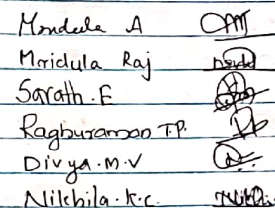 Mondula A
Mridula Raj
Sarath.E
Raghuraman T.P.
Divya.M.V
Nikhila.K.C.